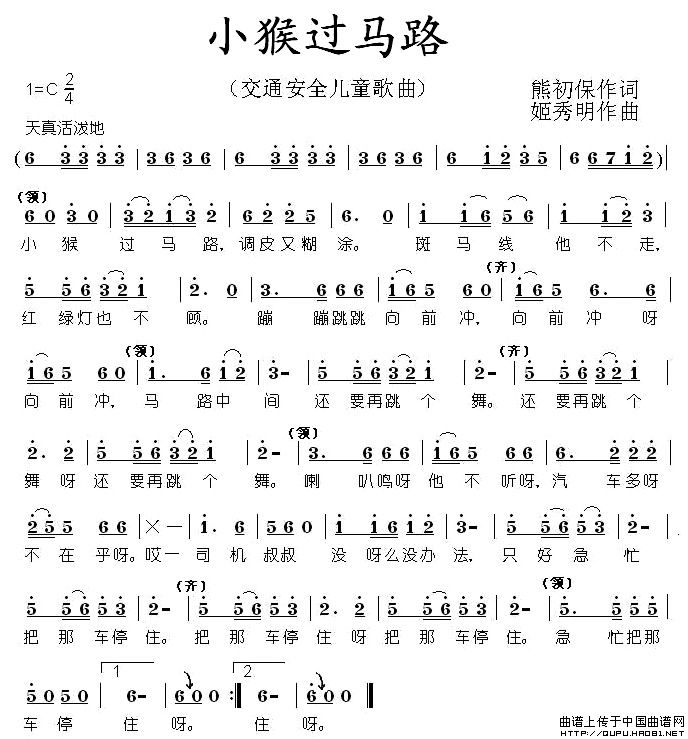 小猴过马路
1=C 2/4
（交通安全儿童歌曲）
熊初保作词
姬秀明作曲
天真活泼地
(6 3 3 3 3 | 3 6 3 6 | 6 3 3 3 3 | 3 6 3 6 | 6 1 2 3 5 | 6 6 7 1 2)
(领)
6 0 3 0 | 3 2 1 3 2 | 6 2 2 2 | 6. 0 | 1 1 6 5 6 | 1 1 2 3
小猴 过马路,调皮又糊涂。 斑马线他不走,
(齐)
5 5 6 3 2 1 | 2. 0 | 3. 6 6 6 | 1 6 5 6 0 | 1 6 5 6. 6
红绿灯也不顾。 蹦蹦跳跳向前冲,向前冲呀
(领) (齐)
1 6 5 6 0 | 1. 6 1 2 | 3- | 5 5 6 3 2 1 | 2- | 5 5 6 3 2 1
向前冲,马路中间还要再跳个舞。还要再跳个
(领)
2. 2 | 5 5 6 3 2 1 | 2- | 3. 6 6 6 | 1 6 5 6 6 | 6. 2 2 2
舞呀还要再跳个舞。喇叭鸣呀他不听呀,汽车多呀
2 5 5 6 6 | X - | 1. 6 5 5 | 1 1 6 1 2 | 3- | 5 5 6 5 3 | 2-
不在乎呀。哎一司机叔叔没呀么没办法,只好急忙
(齐) (领)
5 5 6 5 5 | 2- | 5 5 6 5 5 | 2. 2 | 5 5 6 5 5 | 2- | 3. 5 5 6
把那车停住。把那车停住呀把那车停住。急忙把那
1 2
5 0 5 0 | 6- | 6 0 0 :| 6- | 6 0 0
车停住呀。住呀。
曲谱上传于中国曲谱网
HTTP://QUPU.HAO81.NET